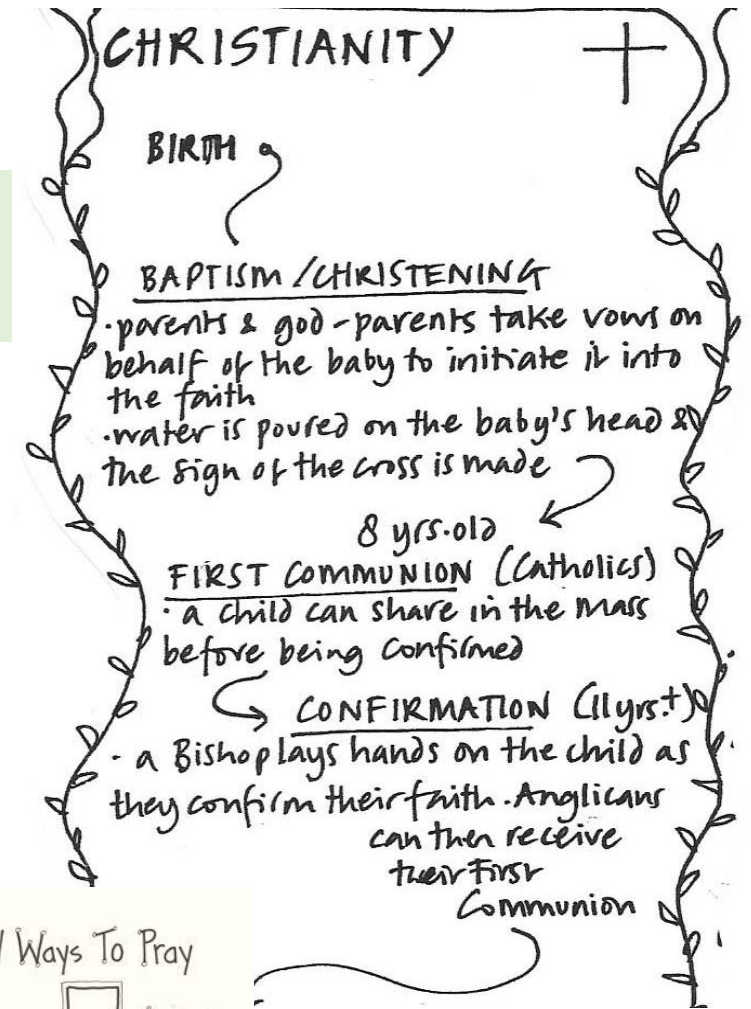 CHRISTIANITY
BIRTH
BAPTISM/CHRISTENING
·parents & god-parents take vows on
behalf of the baby to initiate it into
the faith
·water is poured on the baby's head &
the sign of the cross is made
8 yrs.old
FIRST COMMUNION (Catholics)
· a child can share in the mass
before being confirmed
CONFIRMATION (11yrs.+)
· a Bishop lays hands on the child as
they confirm their faith. Anglicans
can then receive
their First
Communion
Ways To Pray